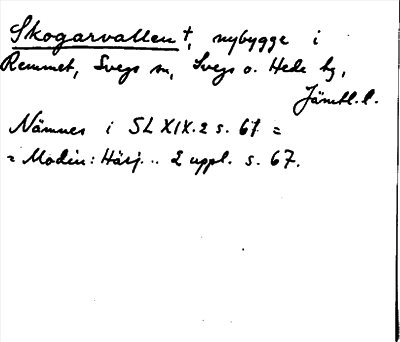 Skogarvallen †, nybygge i
Remmet, Svegs sn, Svegs o. Hede hg,
Jämtl. l.
Nämnes i SL XIX.2 s. 67 =
= Modin: Härj... 2 uppl. s. 67.